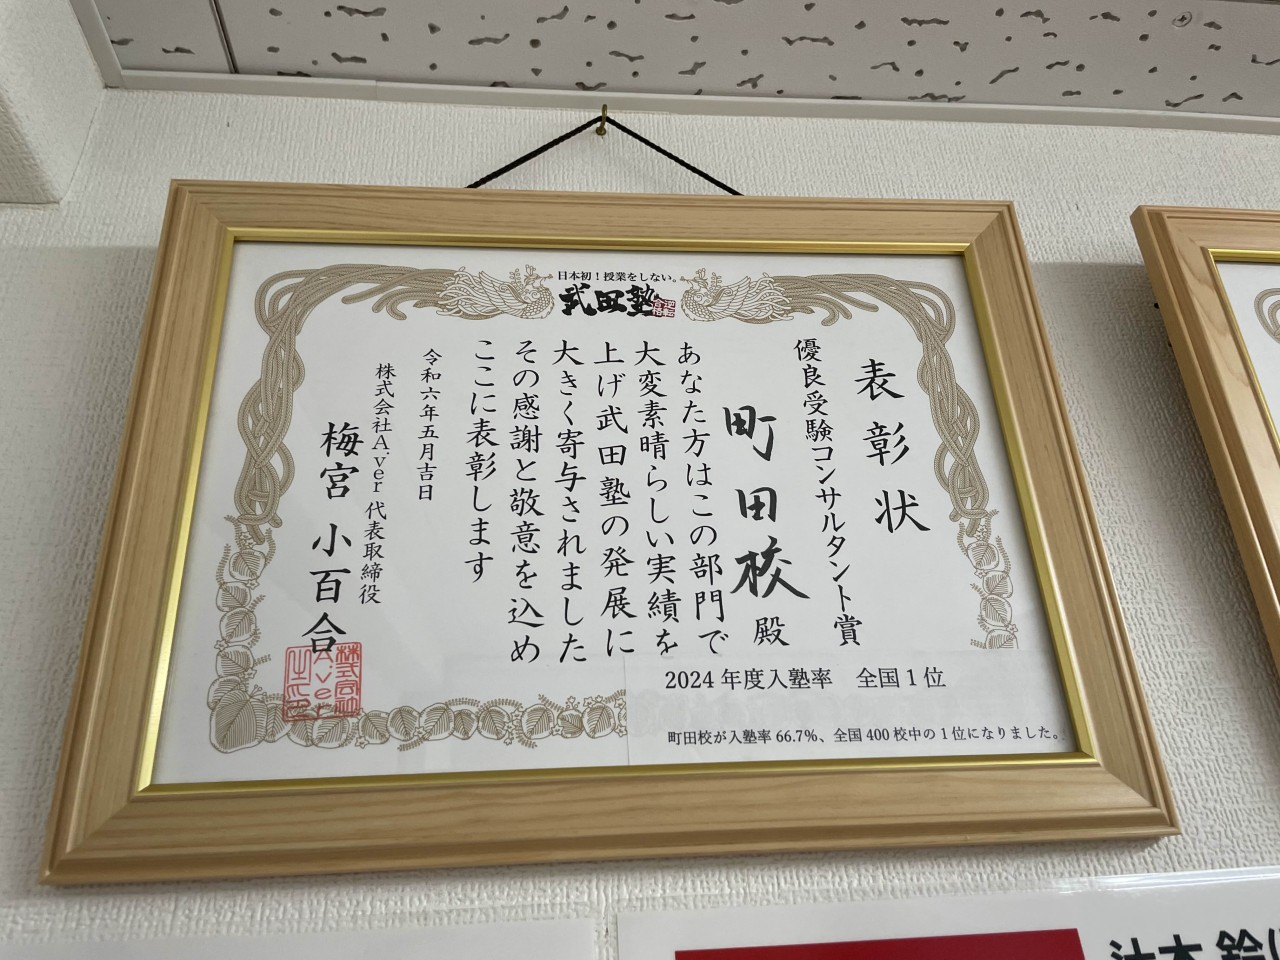 日本初！授業をしない。
武田塾
逆転合格
表彰状
優良受験コンサルタント賞
町田校 殿
あなた方はこの部門で
大変素晴らしい実績を
上げ武田塾の発展に
大きく寄与されました
その感謝と敬意を込め
ここに表彰します
令和六年五月吉日
株式会社A.ver 代表取締役
梅宮 小百合
株式会社
A.ver
之印
2024 年度入塾率 全国 1 位
町田校が入塾率 66.7%、全国 400 校中の 1 位になりました。